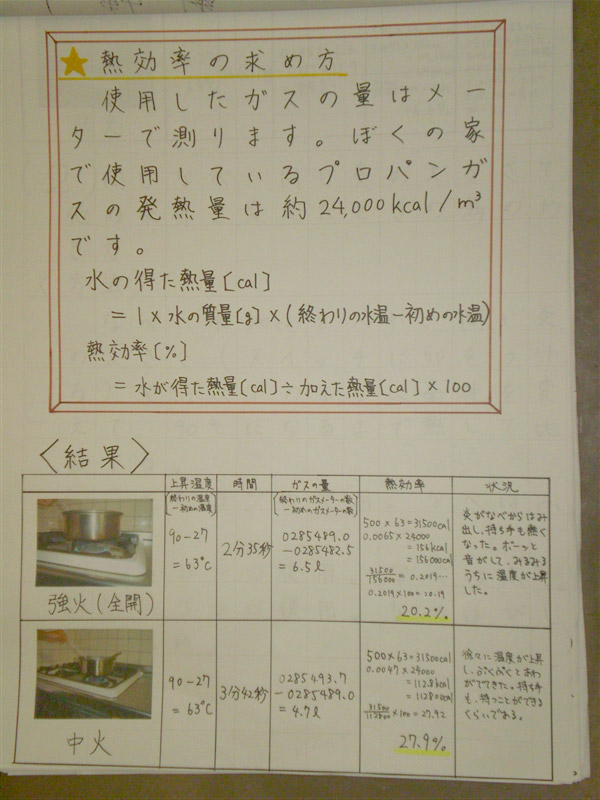 ★熱効率の求め方
使用したガスの量はメー
ターで測ります。ぼくの家
で使用しているプロパンガ
スの発熱量は約24,000kcal/m³
です。
水の得た熱量[cal]
=1×水の質量[g]×(終わりの水温-初めの水温)
熱効率[%]
=水が得た熱量[cal]÷加えた熱量[cal]×100
〈結果〉
上昇温度 時間 ガスの量 熱効率 状況
[終わりの温度
-初めの温度]
[終わりのガスメーターの数
-初めのガスメーターの数]
強火(全開)
90-27
=63℃
2分35秒
0285489.0
-0285482.5
=6.5ℓ
500×63=31500cal
0.0065×24000
=156kcal
=156000cal
31500/156000=0.2019…
0.2019×100=20.19
20.2%
炎がなべからはみ
出し、持ち手も熱く
なった。ボーッと
音がして、みるみる
うちに温度が上昇
した。
中火
90-27
=63℃
3分42秒
0285493.7
-0285489.0
=4.7ℓ
500×63=31500cal
0.0047×24000
=112.8kcal
=112800cal
31500/112800×100=27.92
27.9%
徐々に温度が上昇
し、ぷくぷくとあわ
がでてきた。持ち手
も、持つことができる
くらいである。